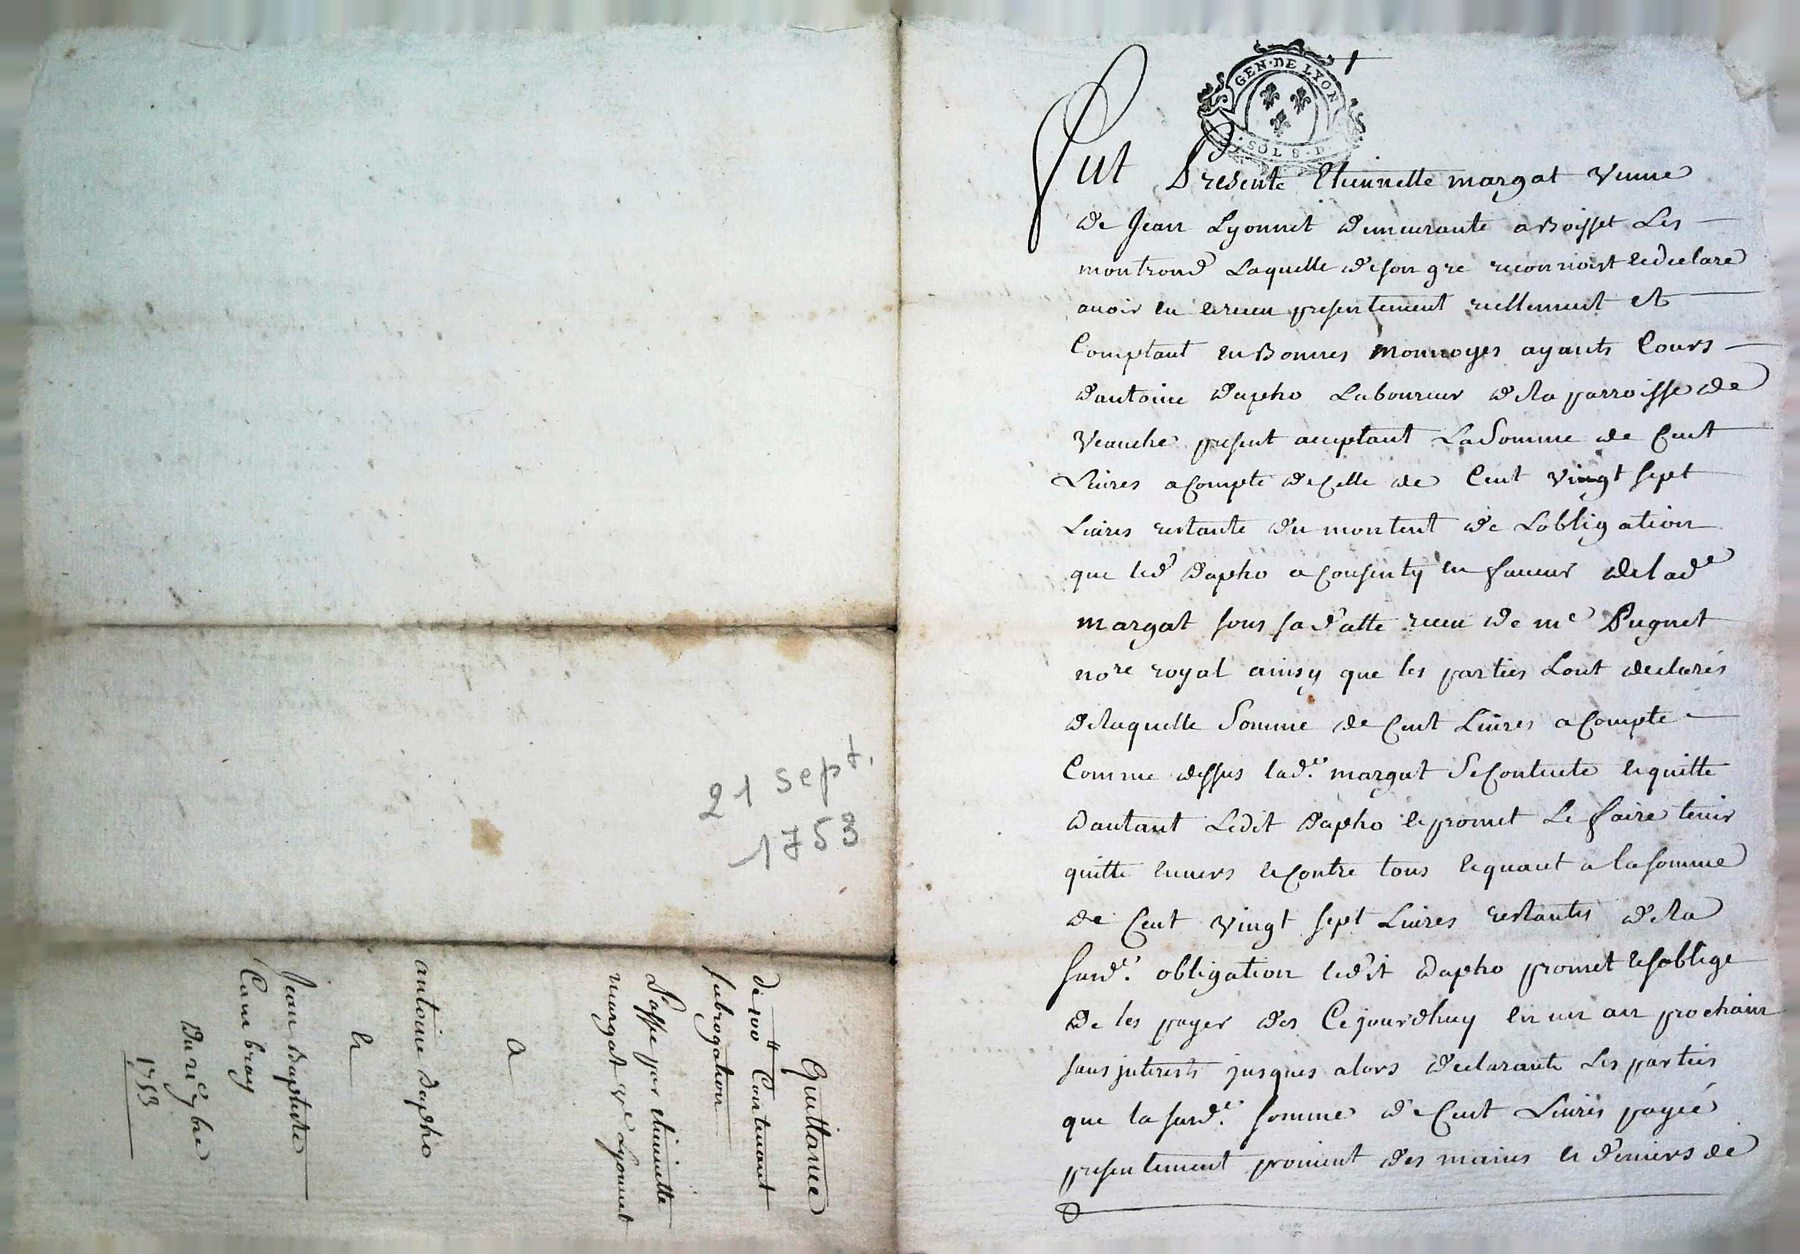 21 sept.
1753
Quittance
de 100# Contenant
subrogation
Passé par etiennette
margat v.e Lyonnet
a
antoine dapho
et
Jean Baptiste
Cambray
Du 21e 7bre
1753
GEN·DE LYON
SOLS·D
Fut Presente Etiennette margat veuve
de Jean Lyonnet demeurante a Boisset Les
montrond Laquelle de son gré reconnoist et declare
avoir eu et receu presentement réellement et
Comptant en Bonnes monnoyes ayants Cours
d'antoine dapho Laboureur de la parroisse de
Veauche present acceptant La Somme de Cent
Livres a Compte de Celle de Cent vingt sept
Livres restante du montent de L'obligation
que led dapho a Consenty en faveur de lad.e
margat sous sa datte receu de me Pugnet
nore royal ainsy que les parties Lont declarés
de laquelle Somme de Cent Livres a Compte
Comme dessus lad.e margat Se Contente et quitte
d'autant Ledit dapho et promet Le faire tenir
quitte envers et Contre tous et quant a la somme
de Cent vingt sept Livres restantes de la
susd.e obligation ledit dapho promet et s'oblige
de les payer des Cejourdhuy en un an prochain
sans interests jusques alors declarante Les parties
que la susd.e somme de Cent Livres payée
presentement provient des mains et deniers de